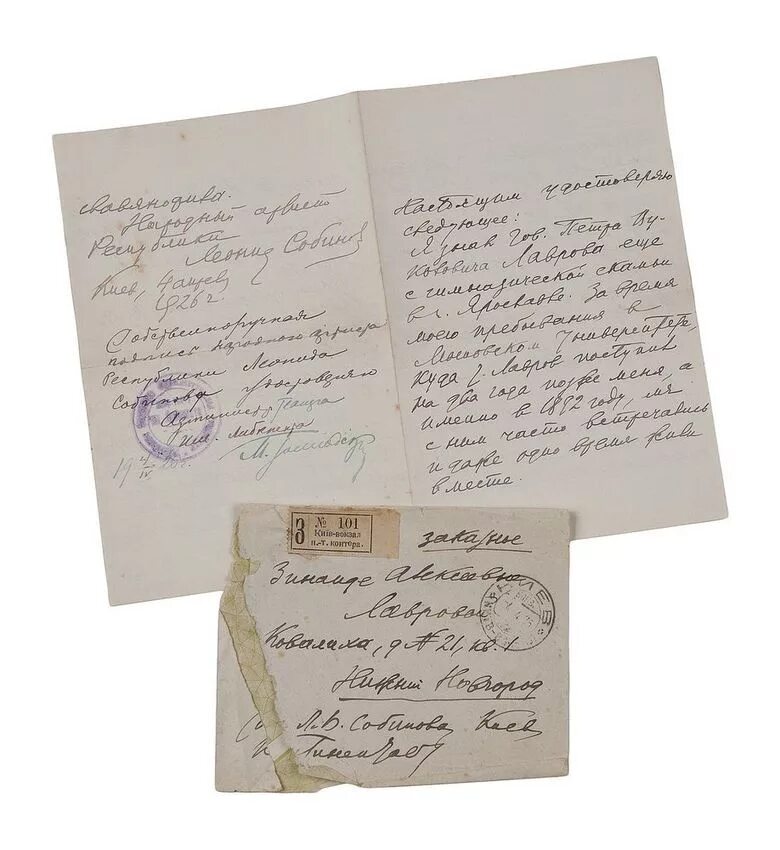 славянофила.
Народный артист
Республики
Леонид Собинов
Киев, 4 апреля
1926 г.
Собственноручная
подпись народного артиста
Республики Леонида
Собинова удостоверяю
Администр. Театра
им. Либкнехта
19 4/IV 26 г.
Настоящим удостоверяю
следующее:
Я знаю гов. Петра Ву-
коловича Лаврова еще
с гимназической скамьи
в г. Ярославле. За время
моего пребывания в
Московском Университете,
куда г. Лавров поступил
на два года позже меня, а
именно в 1892 году, мы
с ним часто встречались
и даже одно время жили
вместе.
З № 101
Київ-вокзал
п.-т. контора.
заказное
Зинаиде Алексеевне
Лавровой
Ковалиха, д № 21, кв. 1
Нижний Новгород
Л. В. Собинова Киев
КИЕВ